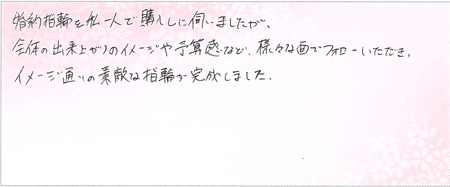 婚約指輪を私一人で購入しに伺いましたが、
全体の出来上がりのイメージや予算感など、様々な面でフォローいただき、
イメージ通りの素敵な指輪が完成しました。